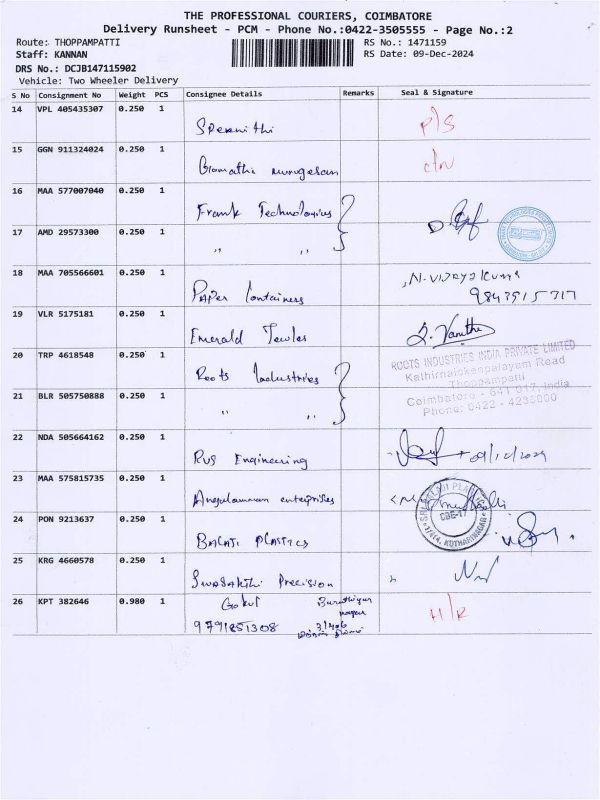 THE PROFESSIONAL COURIERS, COIMBATORE
Delivery Runsheet - PCM - Phone No.:0422-3505555 - Page No.:2
Route: THOPPAMPATTI
RS No.: 1471159
Staff: KANNAN
RS Date: 09-Dec-2024
DRS No.: DCJB147115902
Vehicle: Two Wheeler Delivery
S No Consignment No Weight PCS Consignee Details Remarks Seal & Signature
14 VPL 405435307 0.250 1
P/S
15 GGN 911324024 0.250 1
Gomathi murugesan
16 MAA 577007040 0.250 1
Frank Technologies
17 AMD 29573300 0.250 1
" "
18 MAA 705566601 0.250 1
Paper Containers
N. VIJAYAKUMAR
19 VLR 5175181 0.250 1
Emerald Jewles
Vanitha
20 TRP 4618548 0.250 1
Roots Industries
ROOTS INDUSTRIES INDIA PRIVATE LIMITED
Kathirnaickenpalayam Road
Thoppampatti
Coimbatore - 641 017. India
Phone: 0422 - 4235000
21 BLR 505750888 0.250 1
" "
22 NDA 505664162 0.250 1
RVS Engineering
09/12/2024
23 MAA 575815735 0.250 1
Angalamman enterprises
24 PON 9213637 0.250 1
BALAJI PLASTICS
CBE-17
25 KRG 4660578 0.250 1
Sivasakthi Precision
26 KPT 382646 0.980 1
Gokul
9791851308
nagar
3/406
H/R